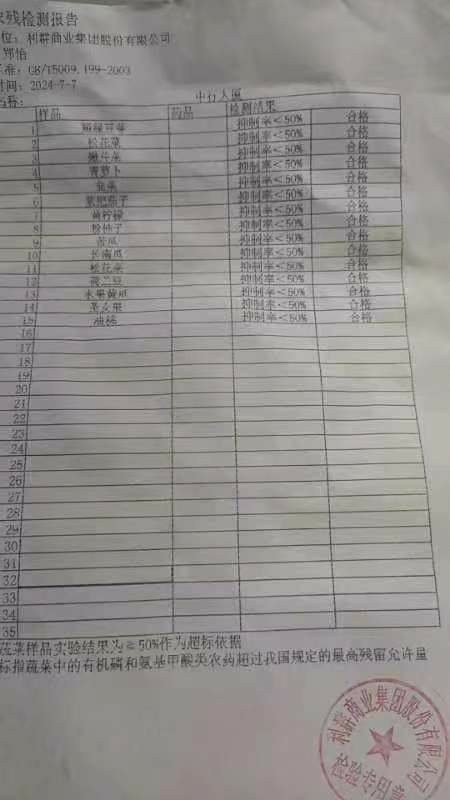 残检测报告
位: 利群商业集团股份有限公司
郑怡
准: GB/T5009.199-2003
时间: 2024-7-7
名称: 中行大厦
样品 药品 检测结果
1 抑制率<50% 合格
2 松花菜 抑制率<50% 合格
3 抑制率<50% 合格
4 青萝卜 抑制率<50% 合格
5 抑制率<50% 合格
6 紫把茄子 抑制率<50% 合格
7 黄柠檬 抑制率<50% 合格
8 粉柿子 抑制率<50% 合格
9 苦瓜 抑制率<50% 合格
10 长南瓜 抑制率<50% 合格
11 松花菜 抑制率<50% 合格
12 荷兰豆 抑制率<50% 合格
13 水果黄瓜 抑制率<50% 合格
14 圣女果 抑制率<50% 合格
15 油桃 抑制率<50% 合格
16
17
18
19
20
21
22
23
24
25
26
27
28
29
30
31
32
33
34
35
蔬菜样品实验结果为≥50%作为超标依据
标指蔬菜中的有机磷和氨基甲酸类农药超过我国规定的最高残留允许量
利群商业集团股份有限公司
检验专用章